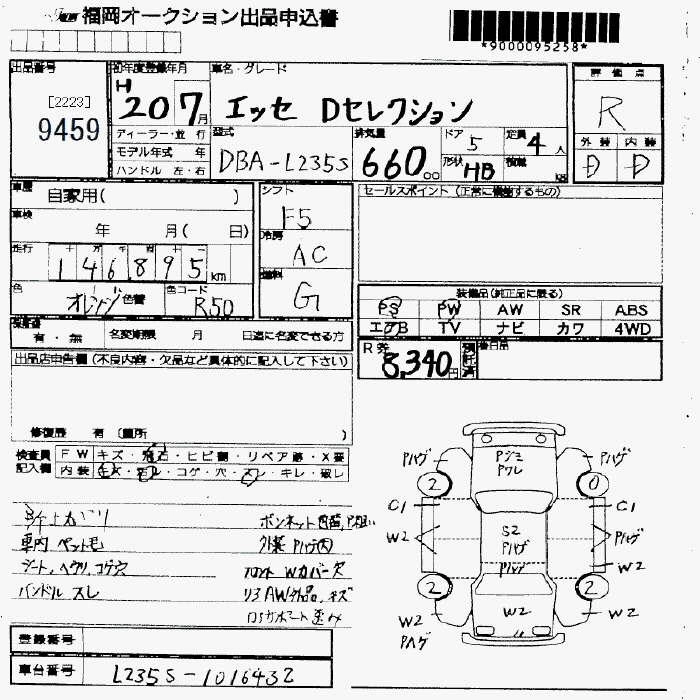 福岡オークション出品申込書
*9000095258*
出品番号
[2223]
9459
初年度登録年月
H 20 7月
車名・グレード
エッセ Dセレクション
評価点
R
外装 内装
D D
ディーラー・並行
モデル年式 年
ハンドル 左・右
型式
DBA-L235S
排気量
660cc
ドア 5
形状 HB
定員 4人
積載 kg
車歴 自家用( )
車検 年 月( 日)
走行 146,895km
色 オレンジ 色替
色コード R50
シフト F5
冷房 AC
燃料 G
セールスポイント (正常に機能するもの)
装備品(純正品に限る)
PS PW AW SR ABS
エアB TV ナビ カワ 4WD
有・無 名変期限 月 日迄に名変できる方
R券 8,340円 預託済
出品店申告欄(不良内容・欠品など具体的に記入して下さい)
修復歴 有〔箇所 )
検査員記入欄
FW キズ・飛石・ヒビ割・リペア跡・X要
内装 キズ・汚れ・コゲ・穴・スレ・キレ・破レ
車内 ペット毛
シート、ヘタリ、コゲ穴
ハンドル スレ
外装 Pハゲ大
フロント Wカバー欠
社外AW外品、キズ
Pハゲ Pハゲ
Pジミ
Pワレ
2 0
C1 C1
W2 S2 Pハゲ
Pハゲ
Pハゲ W2
2 2
W2 W2 W2
Pハゲ
登録番号
車台番号 L235S-1016432